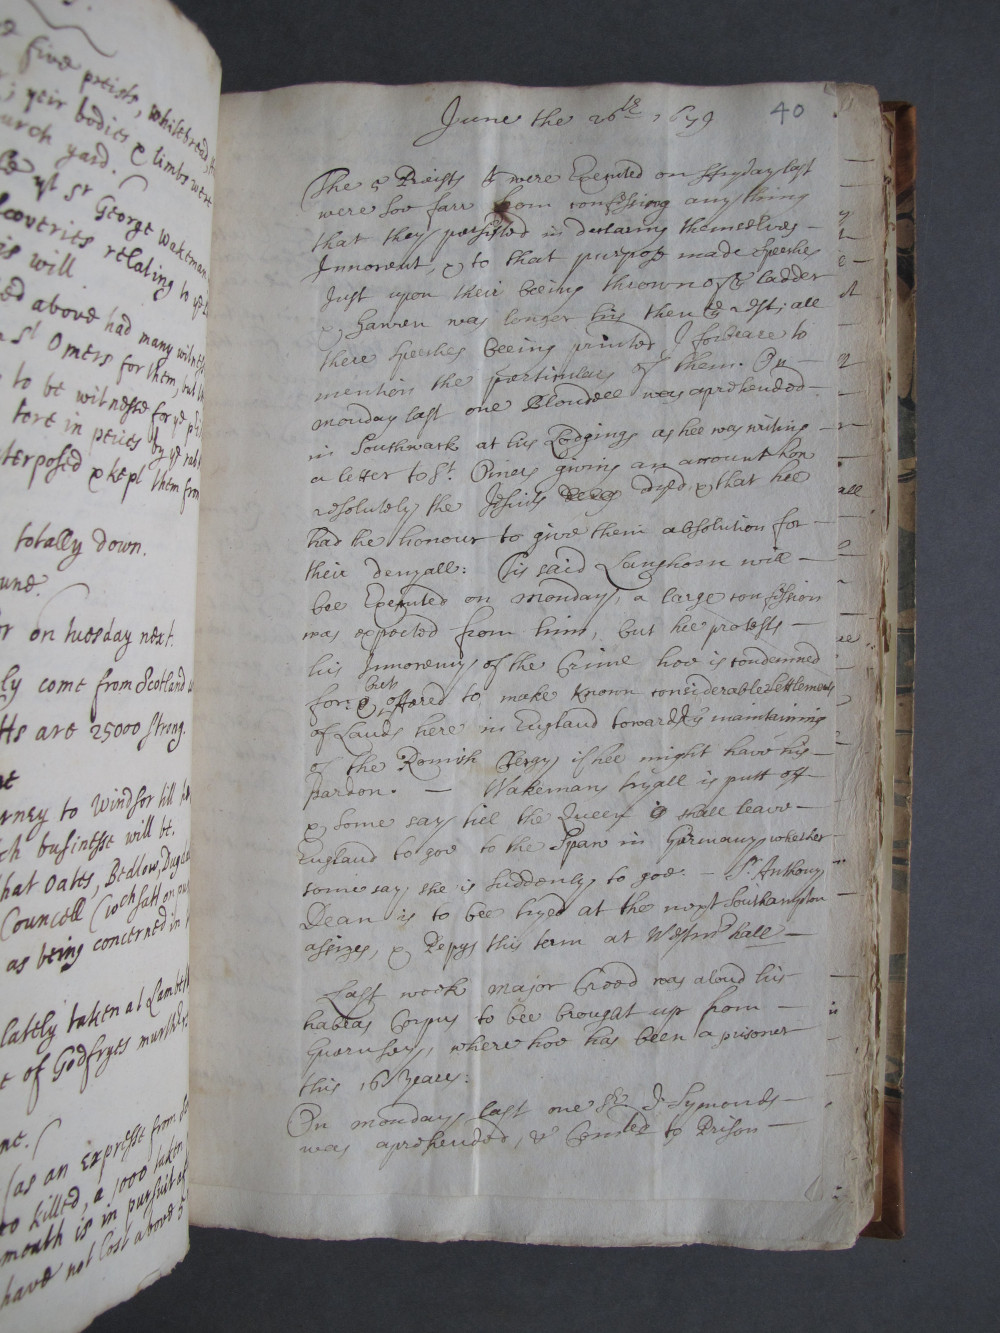 five preists, Whitebread,
yeir bodies & limbs were
urch yard.
yt Sr George Wakeman
coveries relating to ye
is will
ed above had many witnes
St Omers for them, but
to be witnesse for ye
tore in peices by ye rab
terposed & kept them from
totally down.
une.
or on tuesday next.
ly come from Scotland
tts are 25000 strong.
urney to Windsor till
ch businesse will be.
that Oates, Bedlow, Dugda
Councell (wch satt on
as being concerned in
lately taken at Lambeth
e of Godfryes murther
ne.
(as an expresse from
00 killed, a 1000 taken
mouth is in pursuit of
have not lost above 5
June the 26th 1679
40
The 5 Preists yt were Executed on ffryday last
were soe farr from confessing any thing
that they persisted in declaring themselves
Innocent, & to that purpose made speeches
Just upon their beeing thrown of ye ladder
& Gawen was longer his then ye rest; all
these speeches beeing printed I forbeare to
mention the particulars of them. On
monday last one Blondell was aprehended
in Southwark at his Lodgings as hee was writing
a letter to St. Omers giving an account how
resolutely the Jesuits dyed, & that hee
had he honour to give them absolution for
their denyall: Tis said Langhorn will
bee Executed on Monday, a large confession
was expected from him, but hee protests
his Innocency of the Crime hee is condemned
for: but offered to make known considerable settlements
of Lands here in England towards ye maintaining
of the Romish Clergy if hee might have his
pardon. — Wakemans tryall is putt off
& some say till the Queen shall leave
England to goe to the Spaw in Germany, whether
some say she is suddenly to goe. — Sr. Anthony
Dean is to bee tryed at the next Southampton
assizes, & Pepys this term at Westmr hall —
Last week major Creed was aloud his
habeas Corpus to bee brought up from
Guernsey, where hee has been a prisoner
this 16 years:
On monday last one Symonds
was aprehended, & Comted to Prison